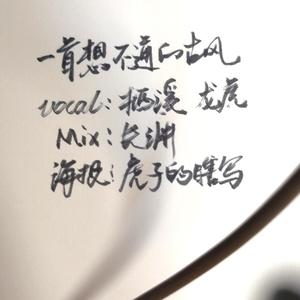 一首想不通的古风
vocal:栖溪 龙虎
Mix:长渊
海报:虎子的瞎写